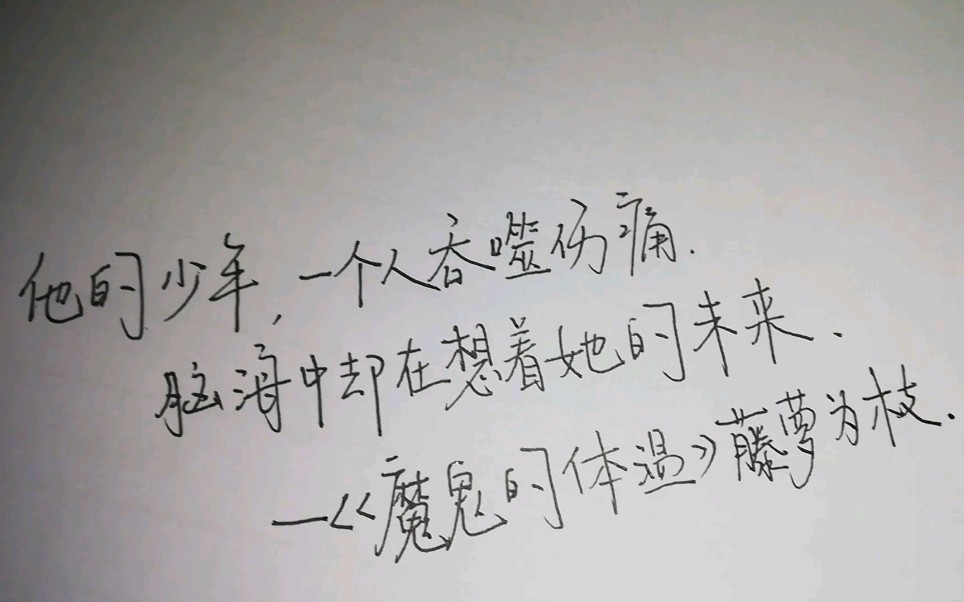 他的少年，一个人吞噬伤痛.
脑海中却在想着她的未来.
—《魔鬼的体温》藤萝为枝.